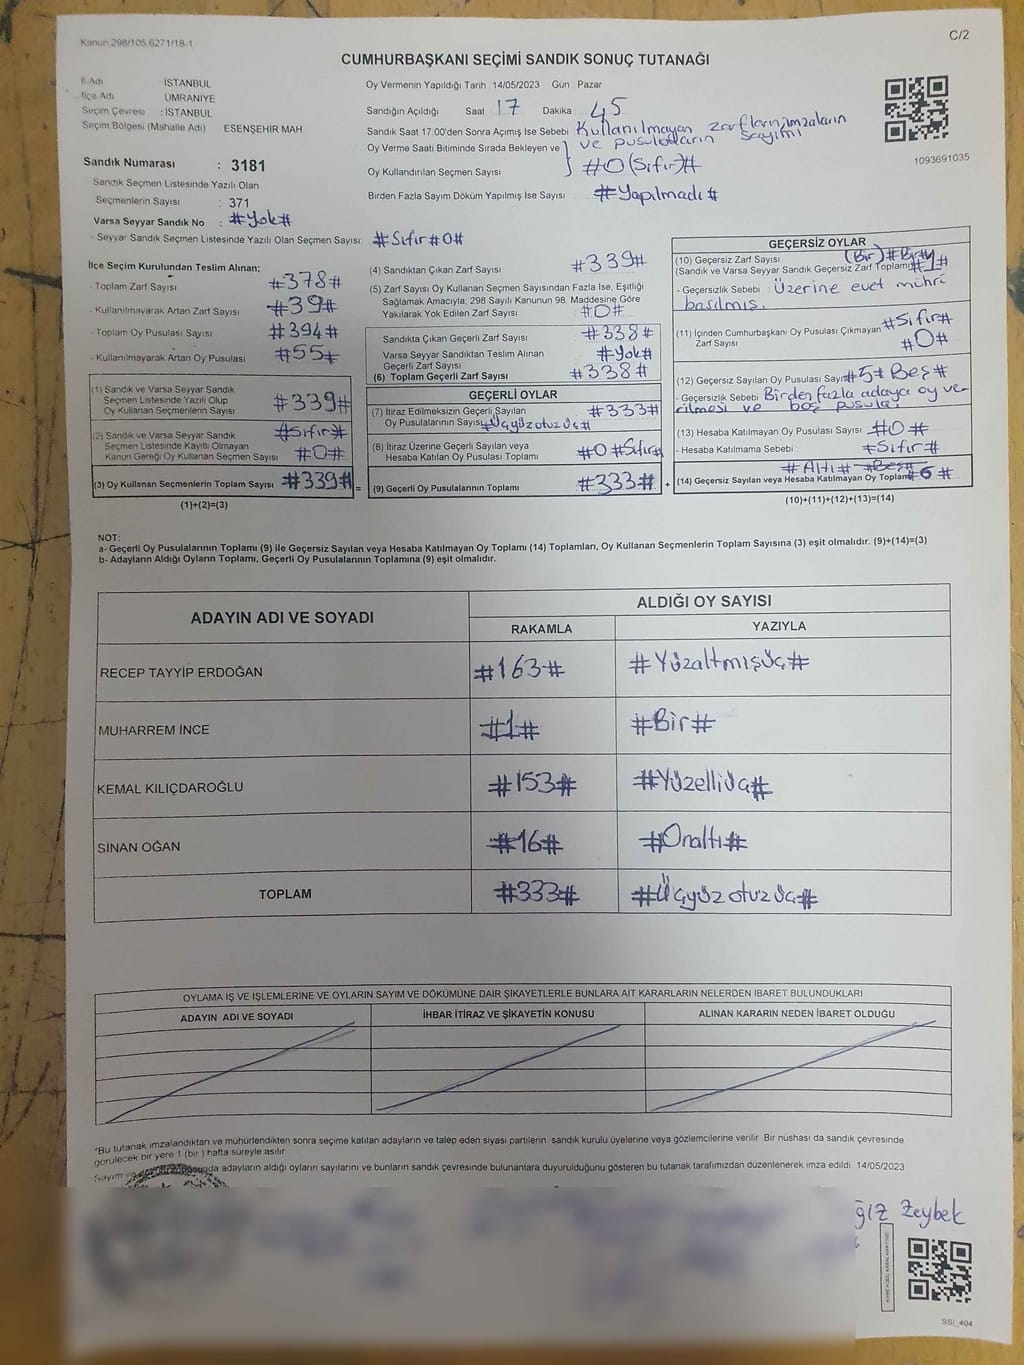 Kanun:298/105,6271/18-1
C/2
CUMHURBAŞKANI SEÇİMİ SANDIK SONUÇ TUTANAĞI
İl Adı İSTANBUL
İlçe Adı ÜMRANİYE
Seçim Çevresi : İSTANBUL
Seçim Bölgesi (Mahalle Adı) ESENŞEHİR MAH.
Sandık Numarası : 3181
Sandık Seçmen Listesinde Yazılı Olan
Seçmenlerin Sayısı : 371
Varsa Seyyar Sandık No : #Yok#
- Seyyar Sandık Seçmen Listesinde Yazılı Olan Seçmen Sayısı: #Sıfır#0#
Oy Vermenin Yapıldığı Tarih 14/05/2023 Gün Pazar
Sandığın Açıldığı Saat 17 Dakika 45
Sandık Saat 17:00'den Sonra Açımış İse Sebebi Kullanılmayan zarfların, imzaların
ve pusulaların sayımı
Oy Verme Saati Bitiminde Sırada Bekleyen ve
Oy Kullandırılan Seçmen Sayısı #0(Sıfır)#
Birden Fazla Sayım Döküm Yapılmış İse Sayısı #Yapılmadı#
1093691035
İlçe Seçim Kurulundan Teslim Alınan;
- Toplam Zarf Sayısı #378#
- Kullanılmayarak Artan Zarf Sayısı #39#
- Toplam Oy Pusulası Sayısı #394#
- Kullanılmayarak Artan Oy Pusulası #55#
(1) Sandık ve Varsa Seyyar Sandık
Seçmen Listesinde Yazılı Olup
Oy Kullanan Seçmenlerin Sayısı #339#
(2) Sandık ve Varsa Seyyar Sandık #Sıfır#
Seçmen Listesinde Kayıtlı Olmayan
Kanun Gereği Oy Kullanan Seçmen Sayısı #0#
(3) Oy Kullanan Seçmenlerin Toplam Sayısı #339#
(1)+(2)=(3)
(4) Sandıktan Çıkan Zarf Sayısı #339#
(5) Zarf Sayısı Oy Kullanan Seçmen Sayısından Fazla İse, Eşitliği
Sağlamak Amacıyla; 298 Sayılı Kanunun 98. Maddesine Göre
Yakılarak Yok Edilen Zarf Sayısı #0#
Sandıkta Çıkan Geçerli Zarf Sayısı #338#
Varsa Seyyar Sandıktan Teslim Alınan
Geçerli Zarf Sayısı #Yok#
(6) Toplam Geçerli Zarf Sayısı #338#
GEÇERLİ OYLAR
(7) İtiraz Edilmeksizin Geçerli Sayılan #333#
Oy Pusulalarının Sayısı #Üçyüzotuzüç#
(8) İtiraz Üzerine Geçerli Sayılan veya
Hesaba Katılan Oy Pusulası Toplamı #0 #Sıfır#
(9) Geçerli Oy Pusulalarının Toplamı #333#
GEÇERSİZ OYLAR
(10) Geçersiz Zarf Sayısı (Bir) #Bir#
(Sandık ve Varsa Seyyar Sandık Geçersiz Zarf Toplamı) #1#
- Geçersizlik Sebebi : Üzerine evet mührü
basılmış.
(11) İçinden Cumhurbaşkanı Oy Pusulası Çıkmayan #Sıfır#
Zarf Sayısı #0#
(12) Geçersiz Sayılan Oy Pusulası Sayısı #5# Beş#
- Geçersizlik Sebebi Birden fazla adaya oy ve-
rilmesi ve boş pusula
(13) Hesaba Katılmayan Oy Pusulası Sayısı #0#
- Hesaba Katılmama Sebebi : #Sıfır#
#Altı# #Beş#
(14) Geçersiz Sayılan veya Hesaba Katılmayan Oy Toplamı #6#
(10)+(11)+(12)+(13)=(14)
NOT:
a- Geçerli Oy Pusulalarının Toplamı (9) ile Geçersiz Sayılan veya Hesaba Katılmayan Oy Toplamı (14) Toplamları, Oy Kullanan Seçmenlerin Toplam Sayısına (3) eşit olmalıdır. (9)+(14)=(3)
b- Adayların Aldığı Oyların Toplamı, Geçerli Oy Pusulalarının Toplamına (9) eşit olmalıdır.
ADAYIN ADI VE SOYADI
ALDIĞI OY SAYISI
RAKAMLA YAZIYLA
RECEP TAYYİP ERDOĞAN #163# #Yüzaltmışüç#
MUHARREM İNCE #1# #Bir#
KEMAL KILIÇDAROĞLU #153# #Yüzelliüç#
SİNAN OĞAN #16# #Onaltı#
TOPLAM #333# #Üçyüzotuzüç#
OYLAMA İŞ VE İŞLEMLERİNE VE OYLARIN SAYIM VE DÖKÜMÜNE DAİR ŞİKAYETLERLE BUNLARA AİT KARARLARIN NELERDEN İBARET BULUNDUKLARI
ADAYIN ADI VE SOYADI İHBAR İTİRAZ VE ŞİKAYETİN KONUSU ALINAN KARARIN NEDEN İBARET OLDUĞU
*Bu tutanak imzalandıktan ve mühürlendikten sonra seçime katılan adayların ve talep eden siyasi partilerin sandık kurulu üyelerine veya gözlemcilerine verilir. Bir nüshası da sandık çevresinde
görülecek bir yere 1 (bir ) hafta süreyle asılır.
Sayım ve adayların aldığı oyların sayılarını ve bunların sandık çevresinde bulunanlara duyurulduğunu gösteren bu tutanak tarafımızdan düzenlenerek imza edildi. 14/05/2023
Zeybek
SSI_404